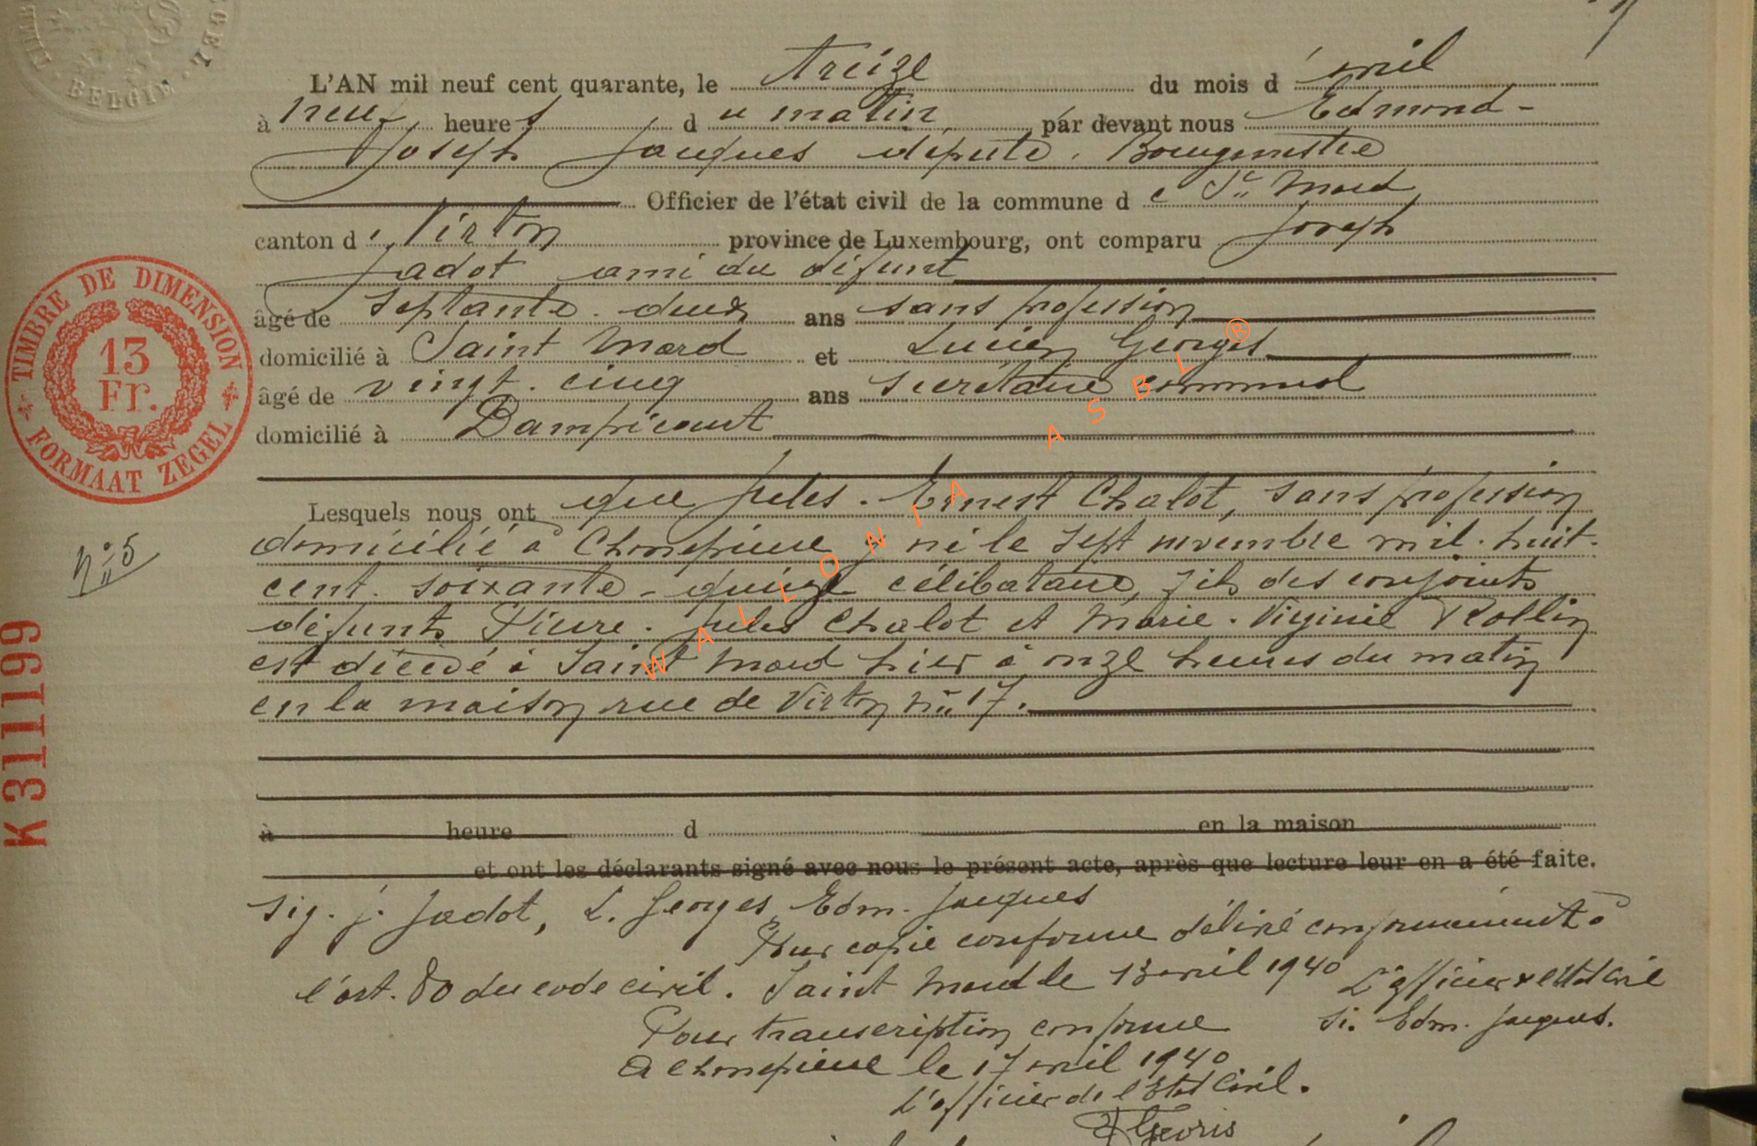 BELGIE
L'AN mil neuf cent quarante, le treize du mois d'avril
à neuf heures du matin par devant nous Edmond-
Joseph Jacques député. Bourgmestre
Officier de l'état civil de la commune de St Mard
canton de Virton province de Luxembourg, ont comparu Joseph
Jadot ami du défunt
âgé de septante-deux ans sans profession
domicilié à Saint Mard et Lucien Georges
âgé de vingt-cinq ans secrétaire communal
domicilié à Dampicourt
Lesquels nous ont que Jules-Ernest Chalot, sans profession
domicilié à Chonepierre, né le sept novembre mil-huit-
cent-soixante-quinze célibataire, fils des conjoints
défunts Pierre-Jules Chalot et Marie-Virginie Rollin
est décédé à Saint Mard hier à onze heures du matin
en la maison rue de Virton no 17.
à heure d en la maison
et ont les déclarants signé avec nous le présent acte, après que lecture leur en a été faite.
Sig. J. Jadot, L. Georges, Edm. Jacques
Pour copie conforme délivré conformément à
l'art. 80 du code civil. Saint Mard le 13 avril 1940 L'officier de l'état civil
Si. Edm. Jacques.
Pour transcription conforme
A Chonepierre le 17 avril 1940
L'officier de l'Etat Civil.
TIMBRE DE DIMENSION
13
Fr.
FORMAAT ZEGEL
no 5
K 311199
WALLONIA ASBL ®